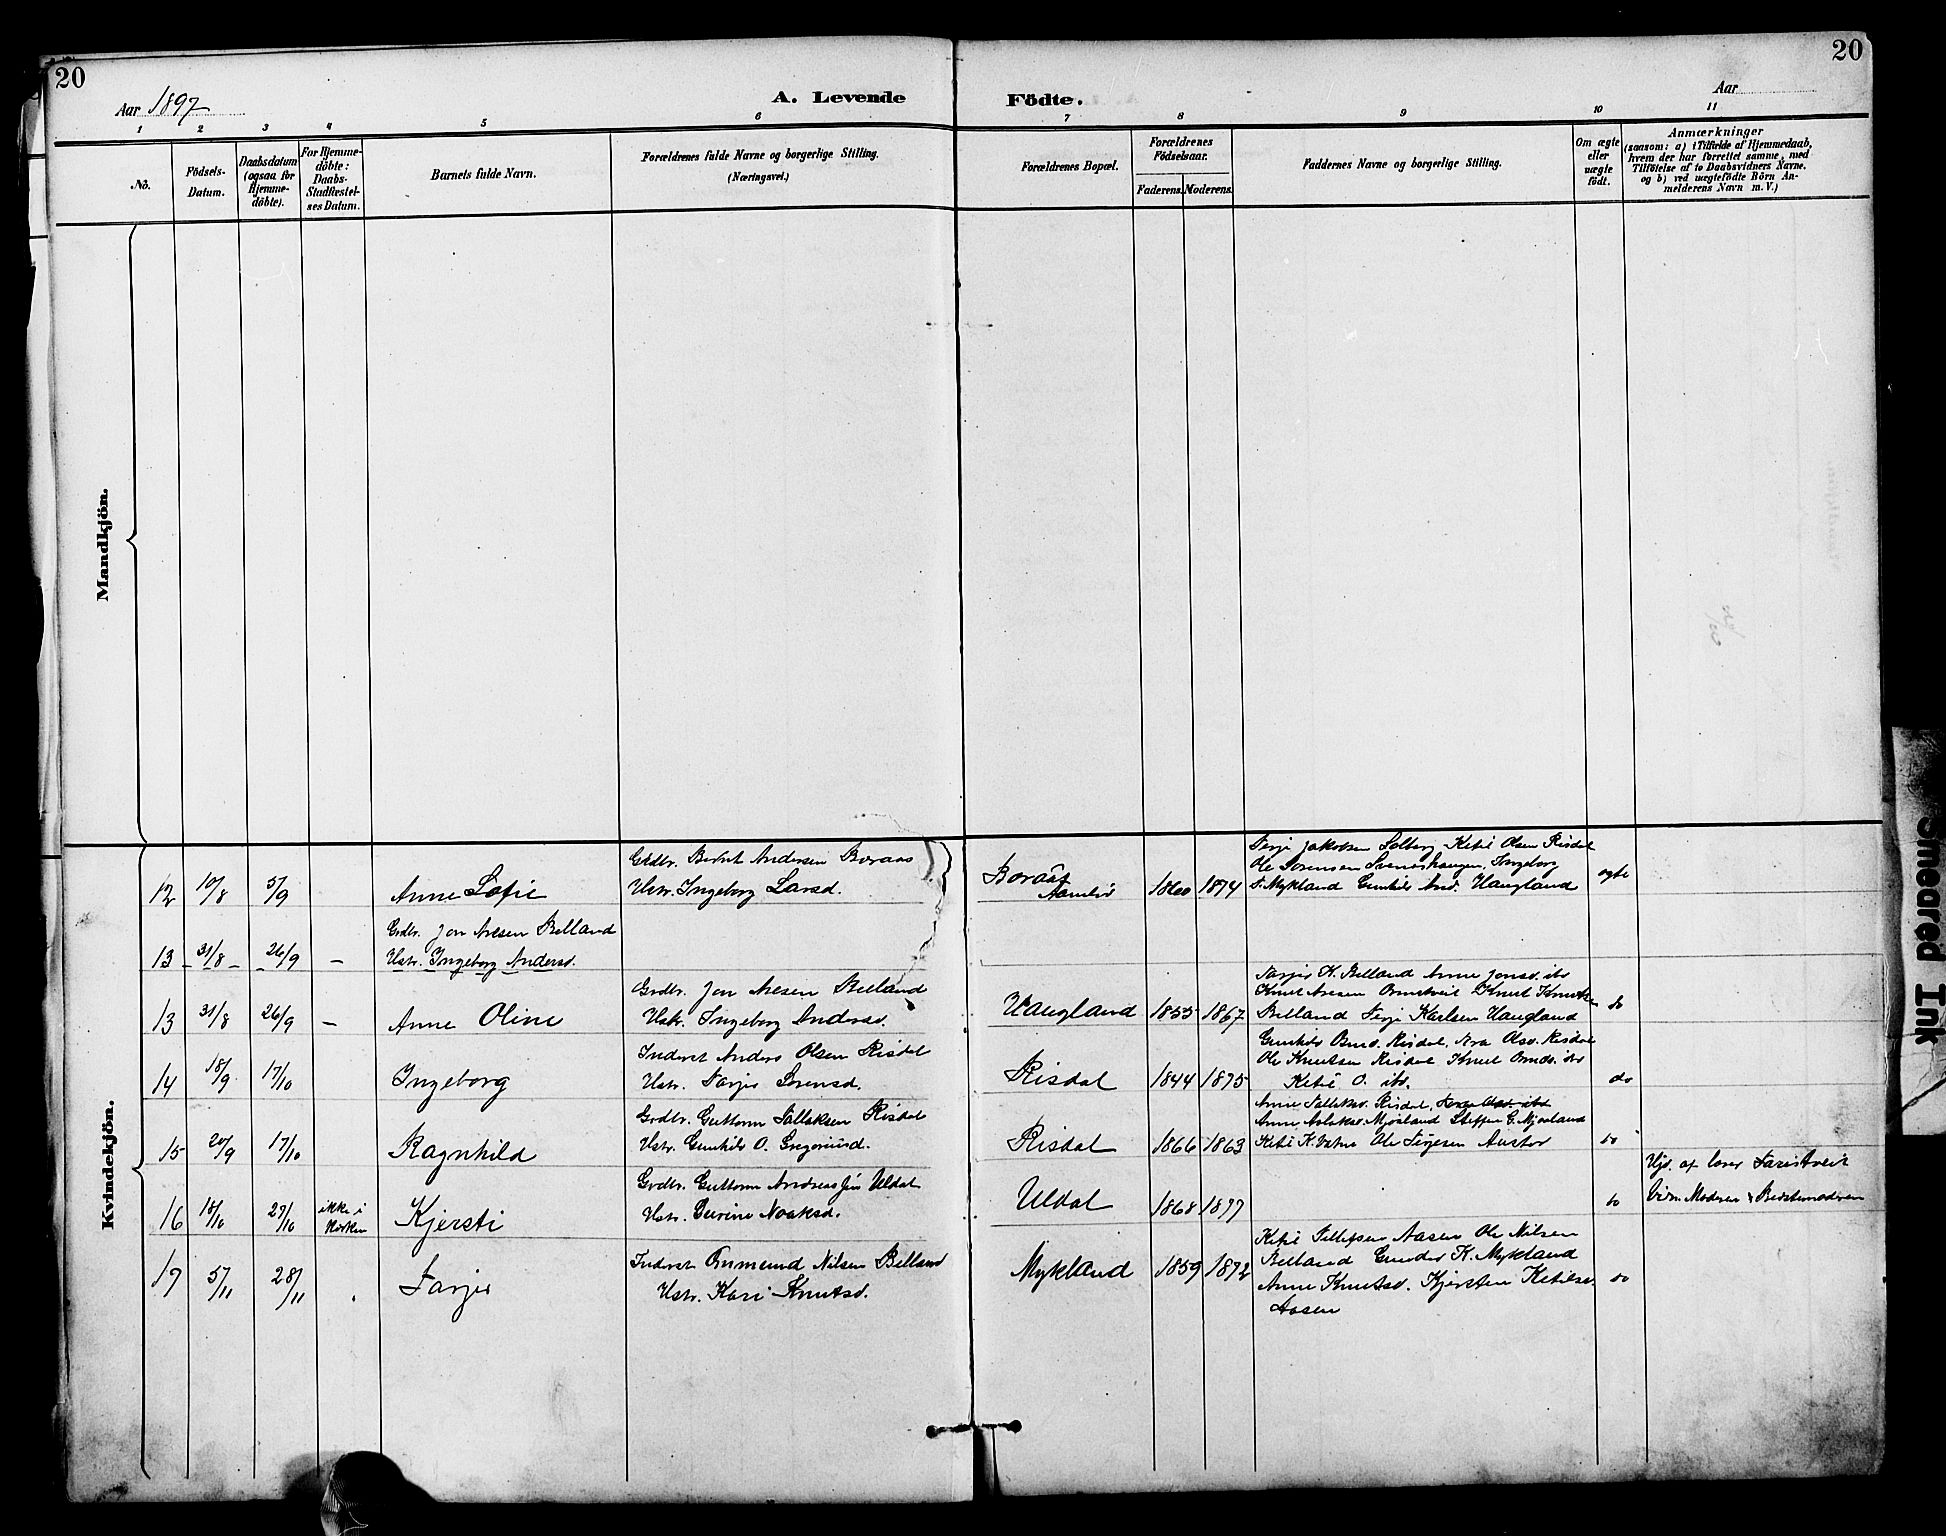 20
20
Aar 1897
A. Levende
Födte.
Aar
1 2 3 4 5 6 7 8 9 10 11
No.
Födsels-
Datum.
Daabsdatum
(ogsaa for
Hjemme-
döbte).
For Hjemme-
döbte:
Daabs-
Stadfæstel-
ses Datum.
Barnets fulde Navn.
Forældrenes fulde Navne og borgerlige Stilling.
(Næringsvei.)
Forældrenes Bopæl.
Forældrenes
Födselsaar.
Faderens. Moderens.
Faddernes Navne og borgerlige Stilling.
Om ægte
eller
uægte
födt.
Anmærkninger
(saasom: a) i Tilfælde af Hjemmedaab,
hvem der har forrettet samme, med
Tilföielse af to Daabsvidners Navne.
og b) ved uægtefödte Börn An-
melderens Navn m. V.)
Mandkjön.
Kvindekjön.
12 10/8 5/9 Anne Sofie
Grdbr. Bernt Andersen Boraas
Hstr. Ingeborg Larsd.
Boraas
Aamli
1860 1874
Terje Jakobsen Solberg Ketil Olsen Risdal
Ole Sorensen Svaneshaugen, Ingeborg
T. Mykland Gunhild And. Haugland
ægte
13 31/8 26/9 –
Grdbr. Jon Aresen Belland
Hstr. Ingeborg Andersd.
13 31/8 26/9 – Anne Oline
Grdbr. Jon Aresen Belland
Hstr. Ingeborg Andersd.
Haugland 1855 1867
Tarjer K. Belland Anne Jonsd. ibd
Knut Aresen Ornstveit Knut Knutsen
Belland Terje Karlsen Haugland
do
14 18/9 17/10 Ingeborg
Inderst Anders Olsen Risdal
Hstr. Tarjer Sorensd.
Risdal 1844 1875
Gunhild Omd. Risdal, Olsd. Risdal
Ole Knutsen Risdal Knut Omds. ibd
Ketil O. ibd.
do
15 20/9 17/10 Ragnhild
Grdbr. Guttorm Tallaksen Risdal
Hstr. Gunhild O. Gregoriusd.
Risdal 1866 1863
Anne Tallaksd. Risdal,
Anne Aslaksd. Mjaaland Steffen G. Mjaaland
Ketil K. Ole Terjesen
do
16 18/10 27/10 ikke i
Kirken
Kjersti
Grdbr. Guttorm Andreassen Uldal
Hstr. Gurine Noaksd.
Uldal 1868 1877
do
Hjd. af lærer
Vidn. Moderen & Bedstemoderen
17 5/11 28/11 Tarjer
Inderst Onmund Nilsen Belland
Hstr. Kari Knutsd.
Mykland 1859 1872
Ketil Tellefsen Aasen Ole Nilsen
Belland Gunder K. Mykland
Anne Knutsd. Kjersten Ketilsd
Aasen
do
Smeared Ink